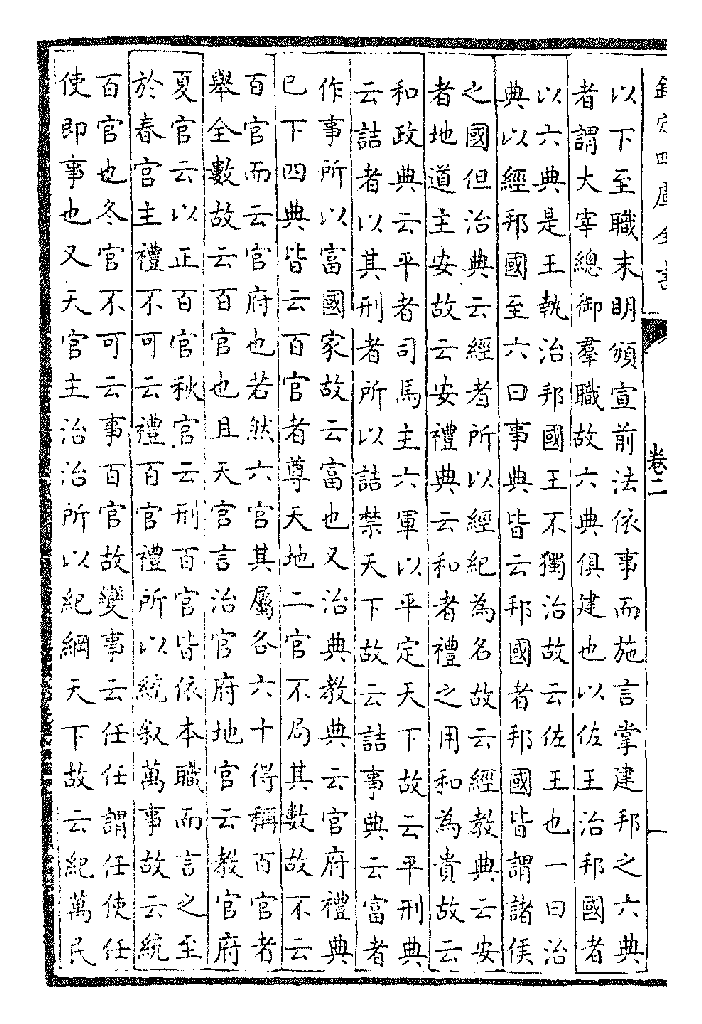 欽定四庫全書
卷二
以下至職末明頒宣前法依事而施言掌建邦之六典
者謂大宰總御羣職故六典俱建也以佐王治邦國者
以六典是王執治邦國王不獨治故云佐王也一曰治
典以經邦國至六曰事典皆云邦國者邦國皆謂諸侯
之國但治典云經者所以經紀為名故云經教典云安
者地道主安故云安禮典云和者禮之用和為貴故云
和政典云平者司馬主六軍以平定天下故云平刑典
云詰者以其刑者所以詰禁天下故云詰事典云富者
作事所以富國家故云富也又治典教典云官府禮典
已下四典皆云百官者尊天地二官不局其數故不云
百官而云官府也若然六官其屬各六十得稱百官者
舉全數故云百官也且天官言治官府地官云教官府
夏官云以正百官秋官云刑百官皆依本職而言之至
於春官主禮不可云禮百官禮所以統叙萬事故云統
百官也冬官不可云事百官故變事云任任謂任使任
使即事也又天官主治治所以紀綱天下故云紀萬民